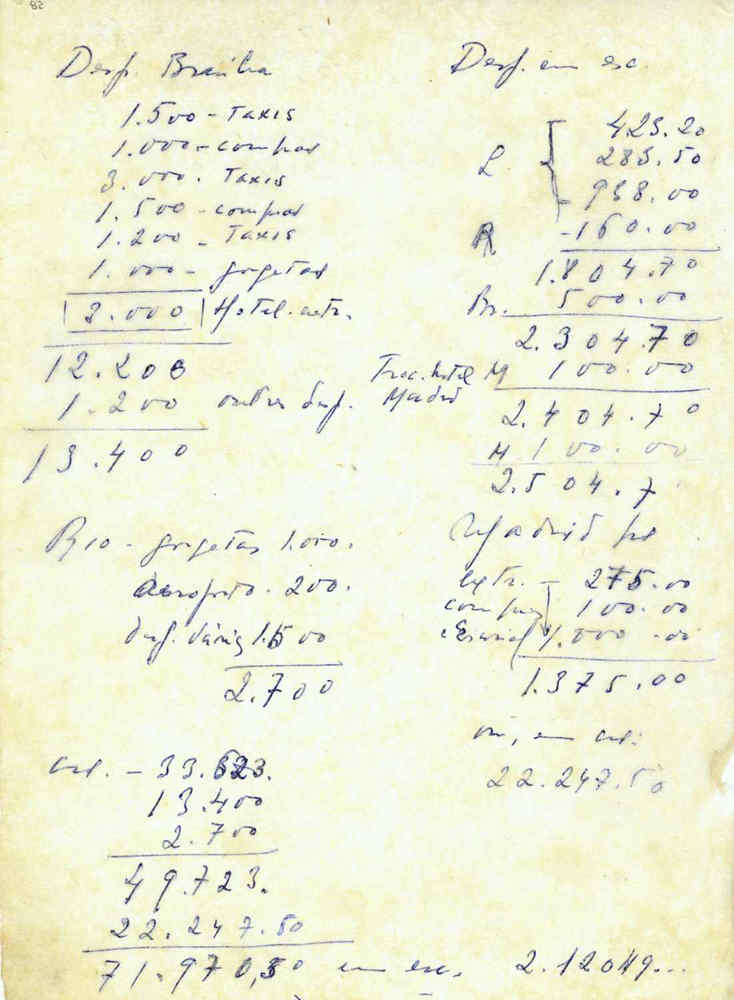 82
Desp. Brasília
1.500 - Taxis
1.000 - compras
3.000 - Taxis
1.500 - compras
1.200 - Taxis
1.000 - gorgetas
3.000 Hotel.
12.200
1.200 outras desp.
13.400
Rio - gorgetas 1.000.
Aeroporto - 200.
desp. várias 1.500
2.700
33.623.
13.400
2.700
49.723.
22.247.50
71.970,50 em esc.
Desp. em esc.
423.20
L 283.50
938.00
R 160.00
1.804.70
Br. 500.00
2.304.70
hotel M 100.00
Madrid
2.404.70
M 100.00
2.504.7
Madrid
extr. - 275.00
compras 100.00
1.000.00
1.375.00
ou, em
22.247.50
2.12049...